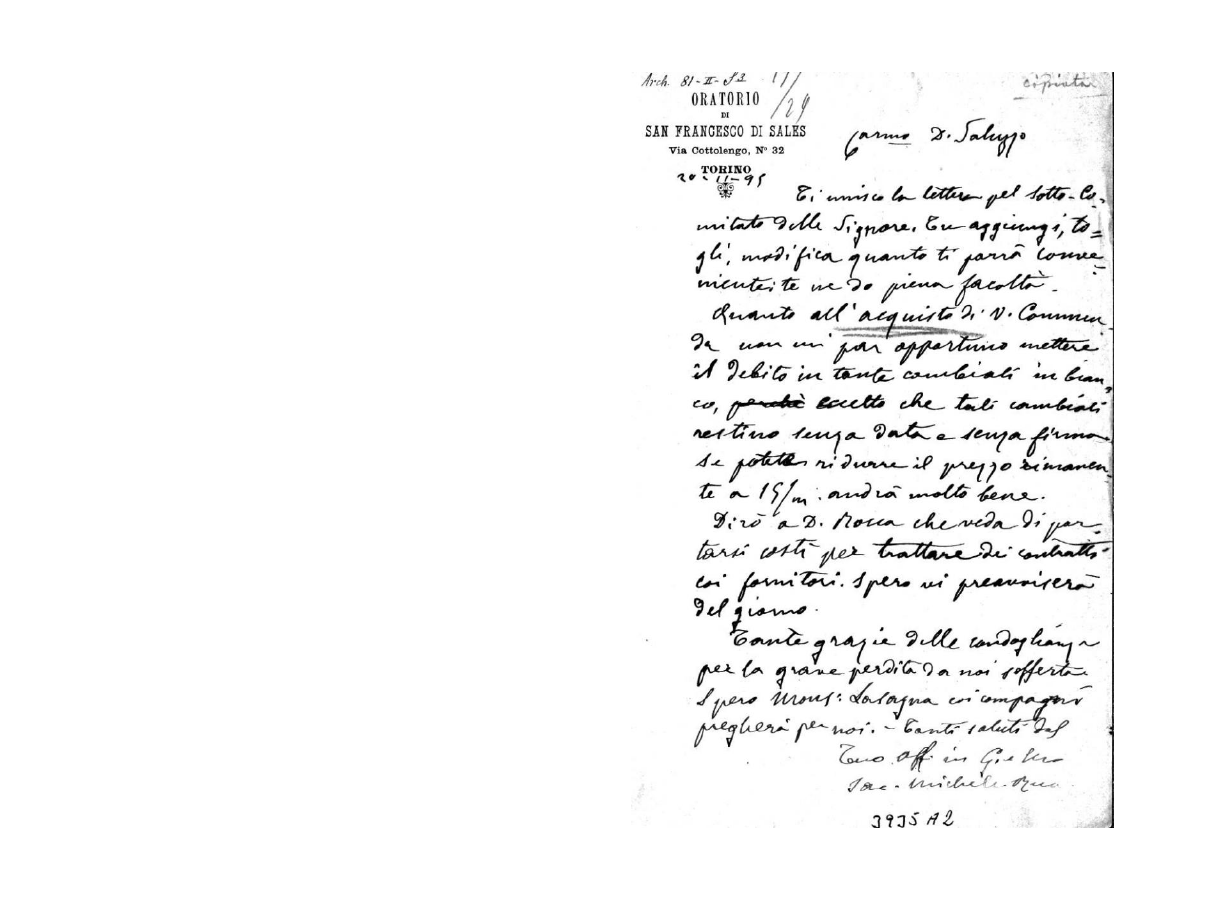 Arch. 81-II-S3
copiata
ORATORIO
DI
SAN FRANCESCO DI SALES
Via Cottolengo, Nº 32
TORINO
20-11-95
Carmo D. Saluzzo
Ti unisco la lettera pel sotto-Co-
mitato delle Signore. Tu aggiungi, to=
gli, modifica quanto ti parrà conve-
niente: te ne do piena facoltà.
Quanto all'acquisto di V. Commen-
da non mi par opportuno mettere
il debito in tante cambiali in bian-
co, perchè eccetto che tali cambiali
restino senza data e senza firma
Se potete ridurre il prezzo rimanen-
te a 15/m. andrà molto bene.
Dirò a D. Rocca che veda di por-
tarsi costì per trattare dei contratti
coi fornitori. Spero vi preavviserà
del giorno.
Tante grazie delle condoglianze
per la grave perdita da noi sofferta.
Spero Mons: Lasagna coi compagni
pregherà per noi. - Tanti saluti dal
Tuo aff in G. e Maria
Sac. Michele Rua
3935 A2